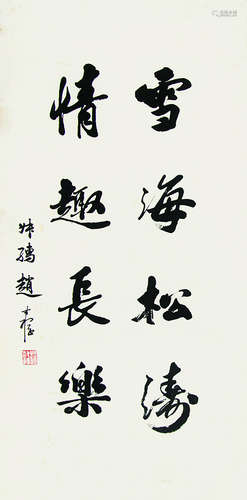 雪海松濤
情趣長樂
趙